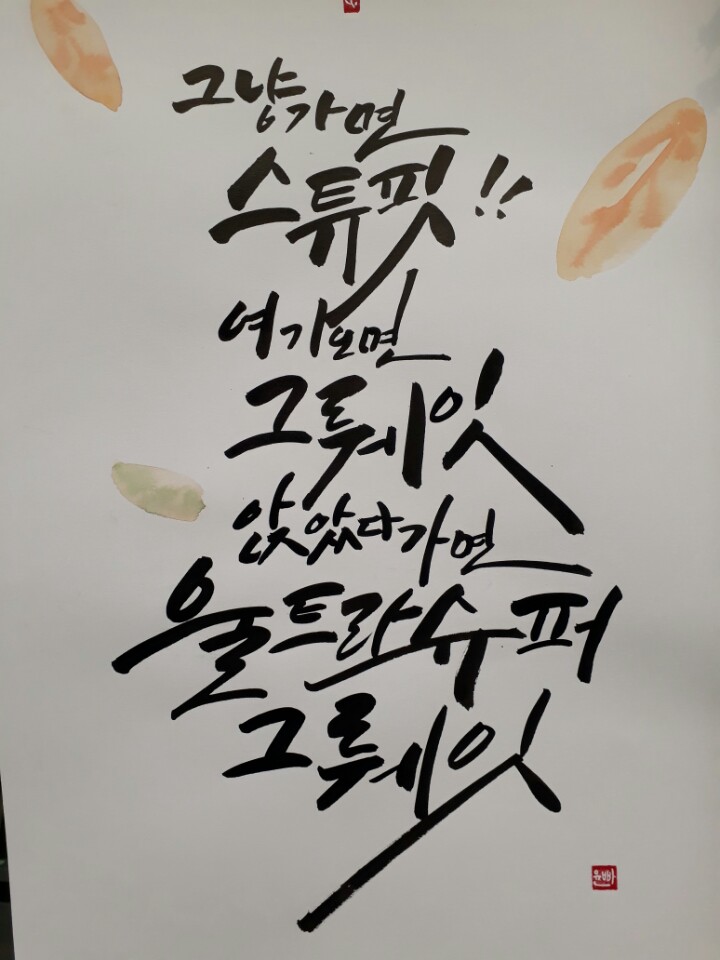 그냥가면
스튜핏!!
여기오면
그뤠잇
앉았다가면
울트라슈퍼
그뤠잇
윤빠